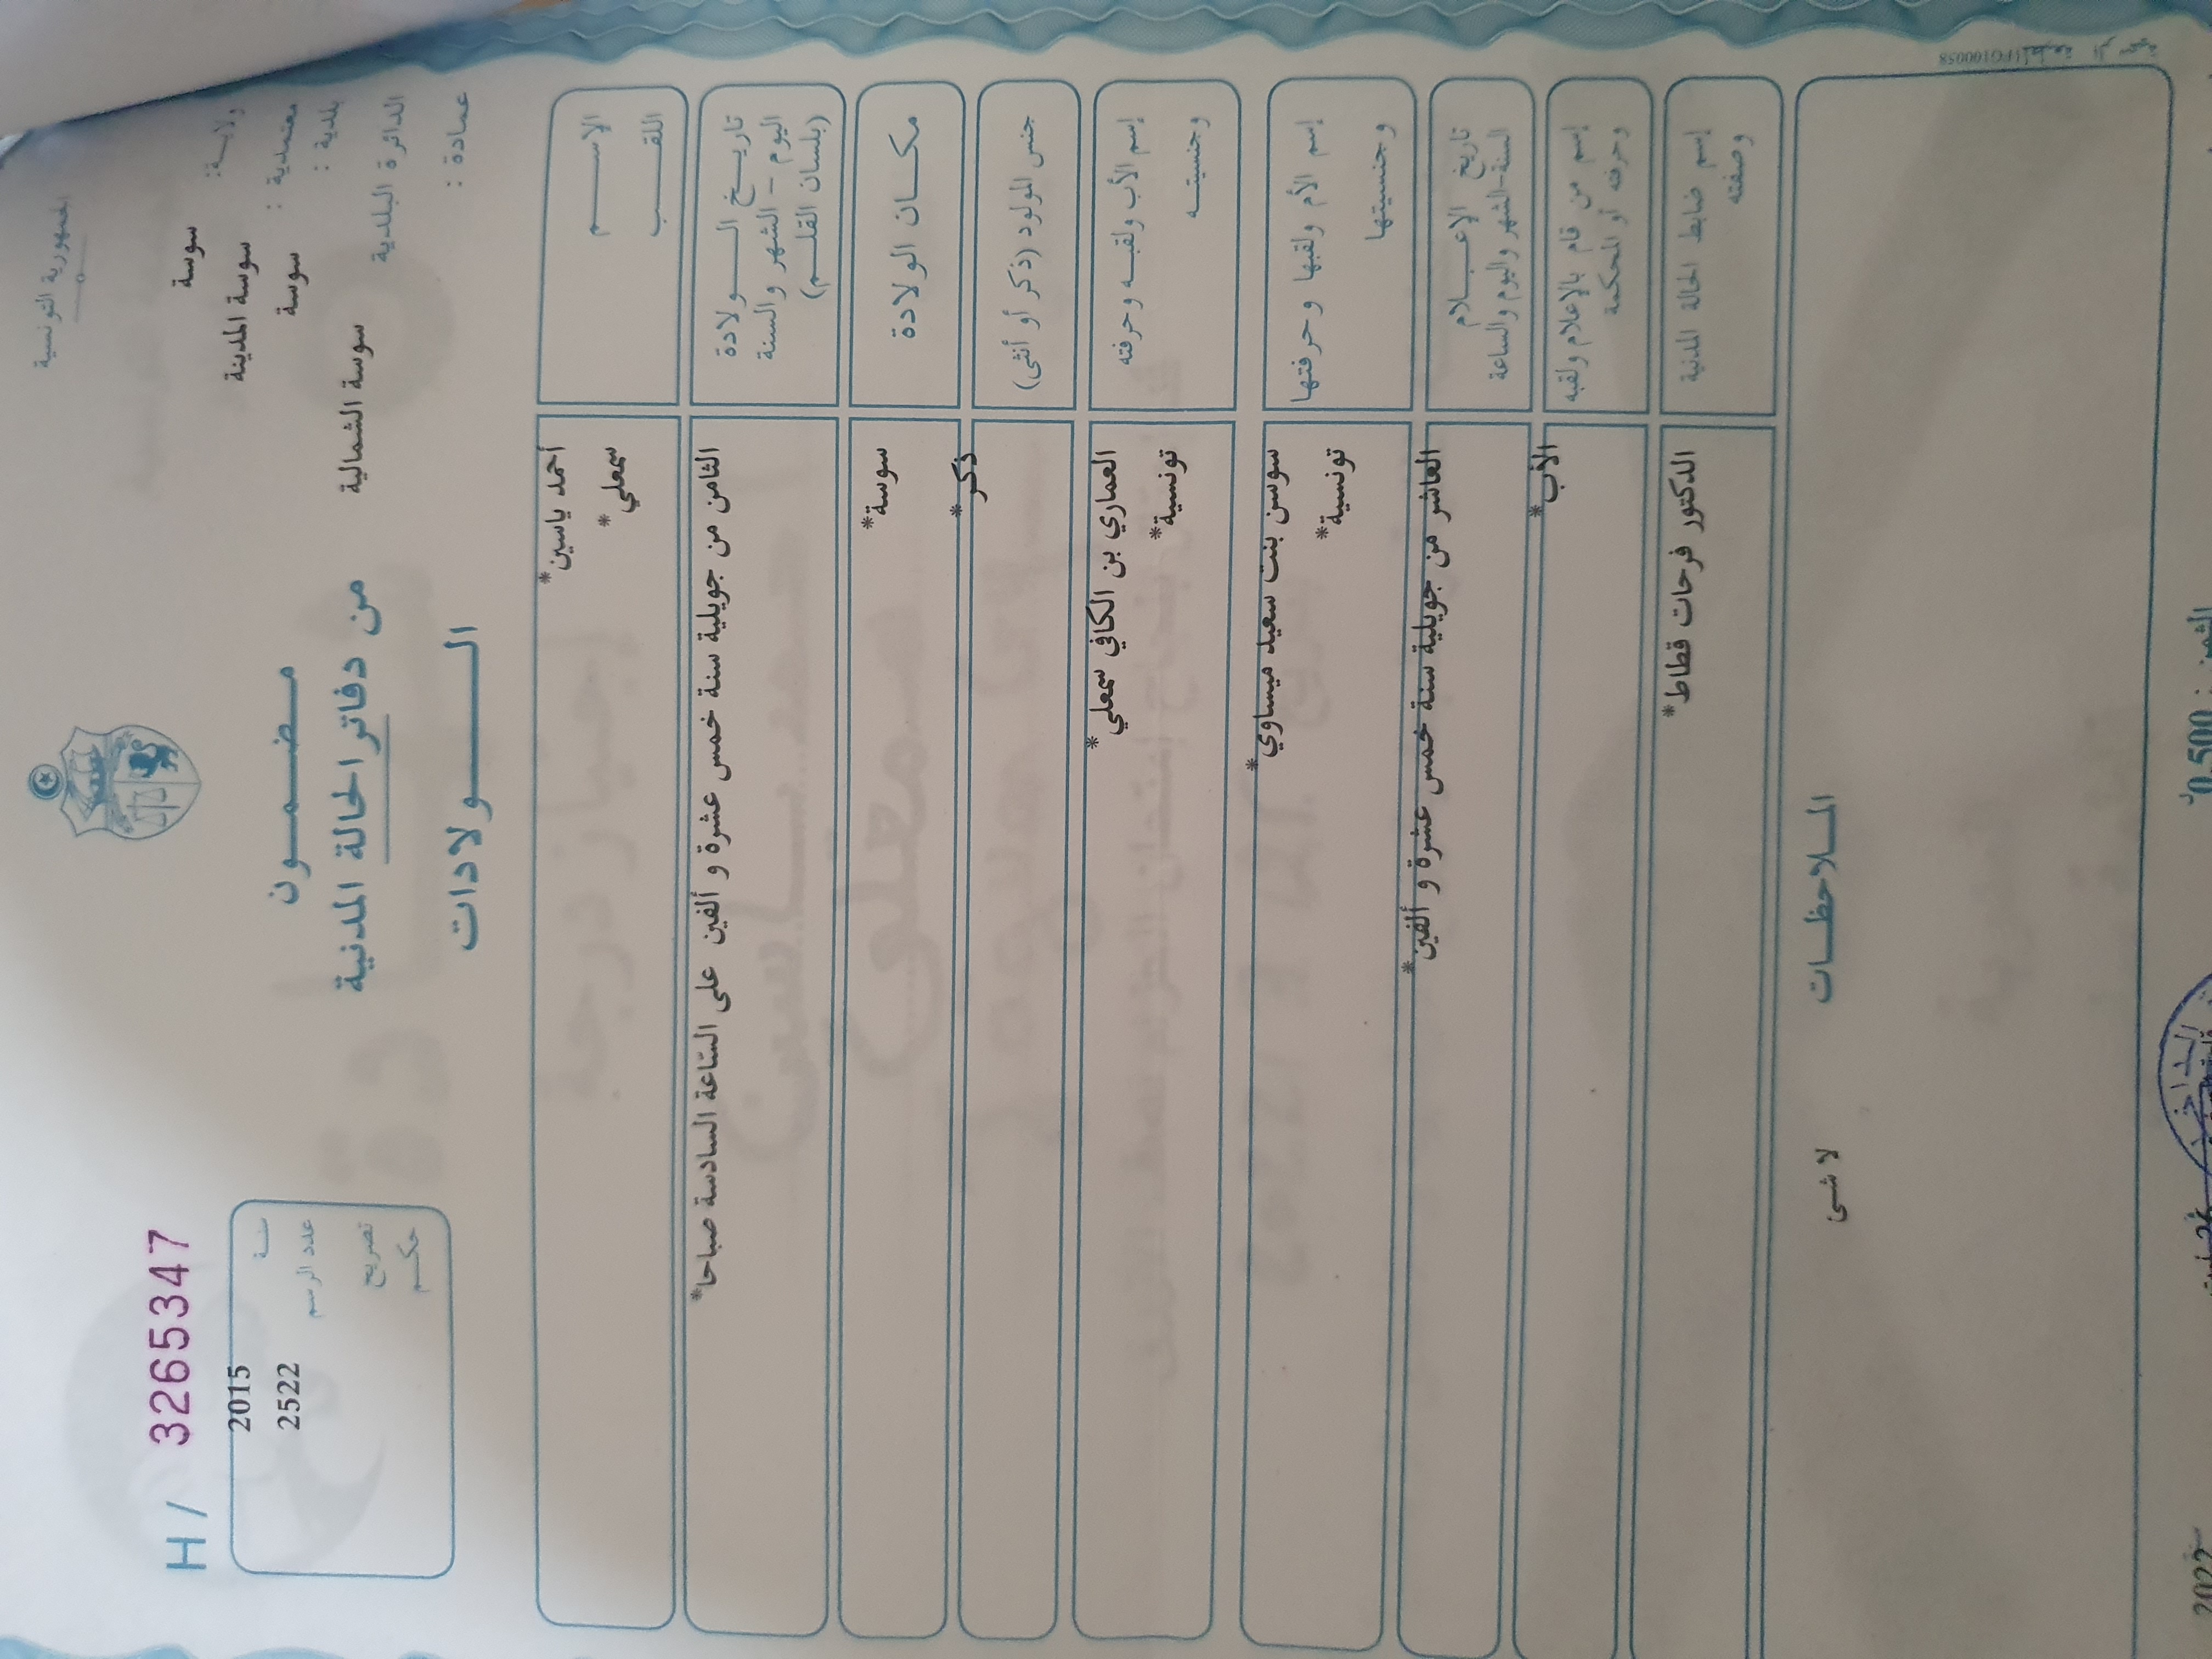 الجمهورية التونسية
ولايـــة: سوسة
معتمدية : سوسة المدينة
بلدية : سوسة
الدائرة البلدية سوسة الشمالية
عمادة :
مـــضـــمـــون
من دفاتر الحالة المدنية
الـــــولادات
H / 3265347
سنــة 2015
عدد الرسم 2522
تصريح
حكــم
الاســــم أحمد ياسين*
اللقـــب سمعلي*
تاريـــخ الـــــولادة
اليوم - الشهر والسنة
(بلسان القلـــم)
الثامن من جويلية سنة خمس عشرة و ألفين على السّاعة السادسة صباحا*
مكـــان الولادة سوسة*
جنس المولود (ذكر أو أنثى) ذكر*
إسم الأب ولقبـــه وحرفته العماري بن الكافي سمعلي*
وجنسيتـــه تونسية*
إسم الأم ولقبها وحرفتها سوسن بنت سعيد ميساوي*
وجنسيتها تونسية*
تاريخ الإعـــلام
السنة-الشهر واليوم والساعة
العاشر من جويلية سنة خمس عشرة و ألفين*
إسم من قام بالإعلام ولقبه الأب*
وحرفته أو المحكمة
إسم ضابط الحالة المدنية الدكتور فرحات قطاط*
وصفته
المـــلاحظـــات
لا شى
الثمن : 0,500
2022